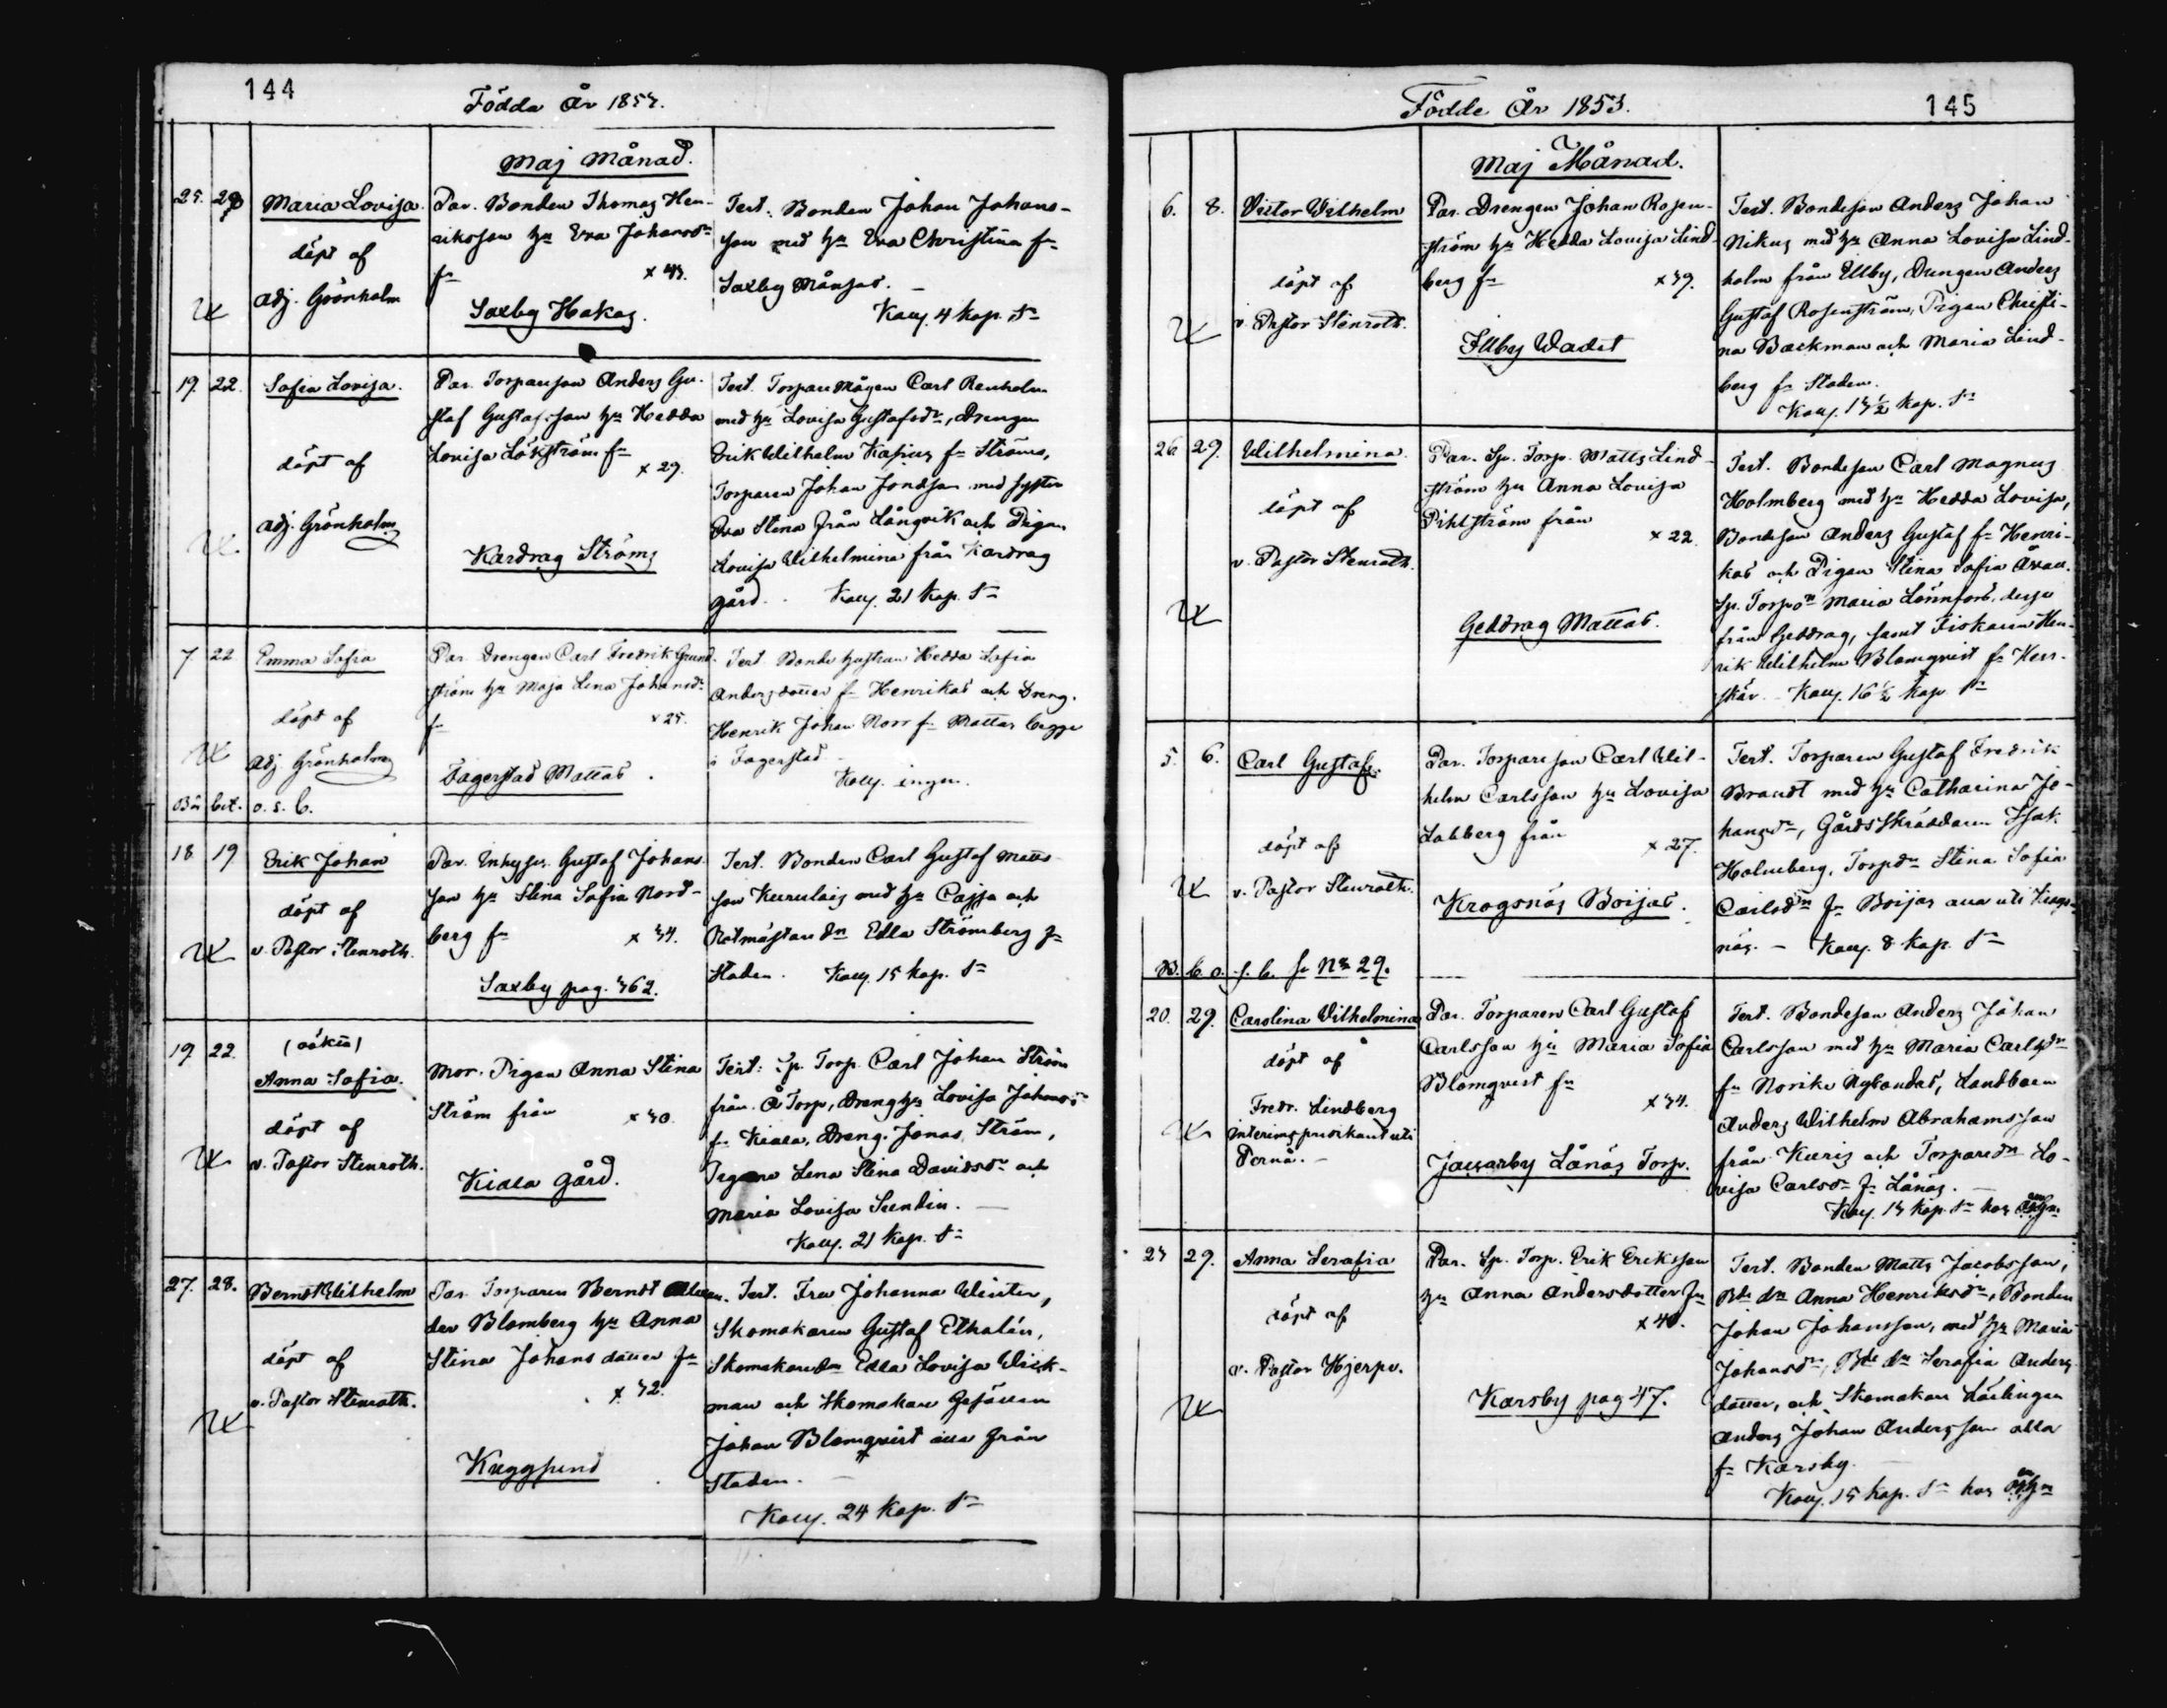 144
Födda År 1853.
Maj Månad.
25. 28 Maria Lovisa.
döpt af
Adj. Grönholm
Par. Bonden Thomas Hen-
riksson hu Eva Johansdr
fr x 43.
Saxby Hakas.
Test. Bonden Johan Johans-
son med hu Eva Christina fr
Saxby Månsas. –
Koll. 4 kop. Sr
19. 22. Sofia Lovisa.
döpt af
Adj. Grönholm
Par. Torpareson Anders Gu-
staf Gustafsson hu Hedda
Lovisa Lökström fr
x 29.
Kardrag Ströms
Test. Torparemågen Carl Renholm
med hu Lovisa Gustafsdr, Drengen
Erik Wilhelm Kapius fr Ströms,
Torparen Johan Jonasson med syster
Eva Stina från Långvik och Pigan
Lovisa Wilhelmina från Kardrag
gård. . Koll. 21 kop. Sr
7. 22 Emma Sofia
döpt af
Adj. Grönholm
Bär bet. o. s. b.
Par. Drengen Carl Fredrik Grund-
ström hu Maja Lena Johansdr
fr x 25.
Fagerstad Mattas .
Test. Bonde hustrun Hedda Sofia
Andersdotter fr Henrikas och Dreng.
Henrik Johan Norr fr Mattas begge
i Fagerstad –
Koll. ingen.
18 19 Erik Johan
döpt af
v. Pastor Stenroth.
Par. Inhyses. Gustaf Johans-
son hu Stina Sofia Nord-
berg fr x 34.
Saxby pag. 462.
Test. Bonden Carl Gustaf Matts-
son Kurulais med hu Cajsa och
Rotmästare dr Edla Strömberg fr
Staden. Koll. 15 kop. Sr
19. 22. (oäkta)
Anna Sofia.
döpt af
v. Pastor Stenroth.
Mor. Pigan Anna Stina
Ström från x 30.
Kiala Gård.
Test. Sp. Torp. Carl Johan Ström
från Å Torp, Dreng hu Lovisa Johansdr
fr Kiala, Dreng. Jonas Ström,
Pigorna Lena Stina Davidsdr och
Maria Lovisa Sundin. –
Koll. 21 kop. Sr
27. 28. Berndt Wilhelm
döpt af
v. Pastor Stenroth.
Par. Torparen Berndt Alexan-
der Blomberg hu Anna
Stina Johansdotter fr
x 32.
Kuggsund
Test. Fru Johanna Winter,
Skomakaren Gustaf Ekholén,
Skomakaredr Edla Lovisa Wick-
man och Skomakare Gesällen
Johan Blomqvist alla från
Staden. –
Koll. 24 kop. Sr
145
Födde År 1853.
Maj Månad.
6. 8. Victor Wilhelm
döpt af
v. Pastor Stenroth.
Par. Drengen Johan Rosen-
ström hu Hedda Lovisa Lind-
berg fr x 39.
Illby Wadet
Test. Bondeson Anders Johan
Nikus med hu Anna Lovisa Lind-
holm från Illby, Drengen Anders
Gustaf Rosenström, Pigan Christi-
na Backman och Maria Lind-
berg fr Staden.
Koll. 13 ½ kop. Sr
26. 29. Wilhelmina.
döpt af
v. Pastor Stenroth.
Par. Sp. Torp. Matts Lind-
ström hu Anna Lovisa
Pihlström från
x 22
Geddrag Mattas.
Test. Bondeson Carl Magnus
Holmberg med hu Hedda Lovisa,
Bondeson Anders Gustaf fr Henri-
kas och Pigan Stina Sofia
Sp. Torpdr Maria Lönnfors, desse
från Geddrag, samt Fiskaren Hen-
rik Wilhelm Blomqvist fr
skär. – Koll. 16 ½ kop. Sr
5. 6. Carl Gustaf.
döpt af
v. Pastor Stenroth.
B. b. o. s. b. fr No 29.
Par. Torpareson Carl Wil-
helm Carlsson hu Lovisa
Labberg från
x 27.
Krogsnäs Boijas.
Test. Torparen Gustaf Fredrik
Brandt med hu Catharina Jo-
hansdr, Gårdsskräddaren Isak
Holmberg, Torpdr Stina Sofia
Carlsdr fr Boijas alla uti Krogs-
näs. – Koll. 8 kop. Sr
20. 29. Carolina Wilhelmina
döpt af
Fredr. Lindberg
interims predikant uti
Pernå. –
Par. Torparen Carl Gustaf
Carlsson hu Maria Sofia
Blomqvist fr
x 34.
Jackarby Lånäs Torp.
Test. Bondeson Anders Johan
Carlsson med hu Maria Carlsdr
fr Norike Nybondas, Landboen
Anders Wilhelm Abrahamsson
från Kuris och Torparedr Lo-
visa Carlsdr fr Lånäs. –
Koll. 13 kop. Sr hos
23 29. Anna Serafia
döpt af
v. Pastor Hjerpe.
Par. Sp. Torp. Erik Eriksson
hu Anna Andersdotter fr
x 40.
Karsby pag 47.
Test. Bonden Matts Jacobsson,
Bde dr Anna Henriksdr, Bonden
Johan Johansson, med hu Maria
Johansdr, Bde dr Serafia Anders-
dotter, och Skomakare Lärlingen
Anders Johan Andersson alla
fr Karsby.
Koll. 15 kop. Sr hos